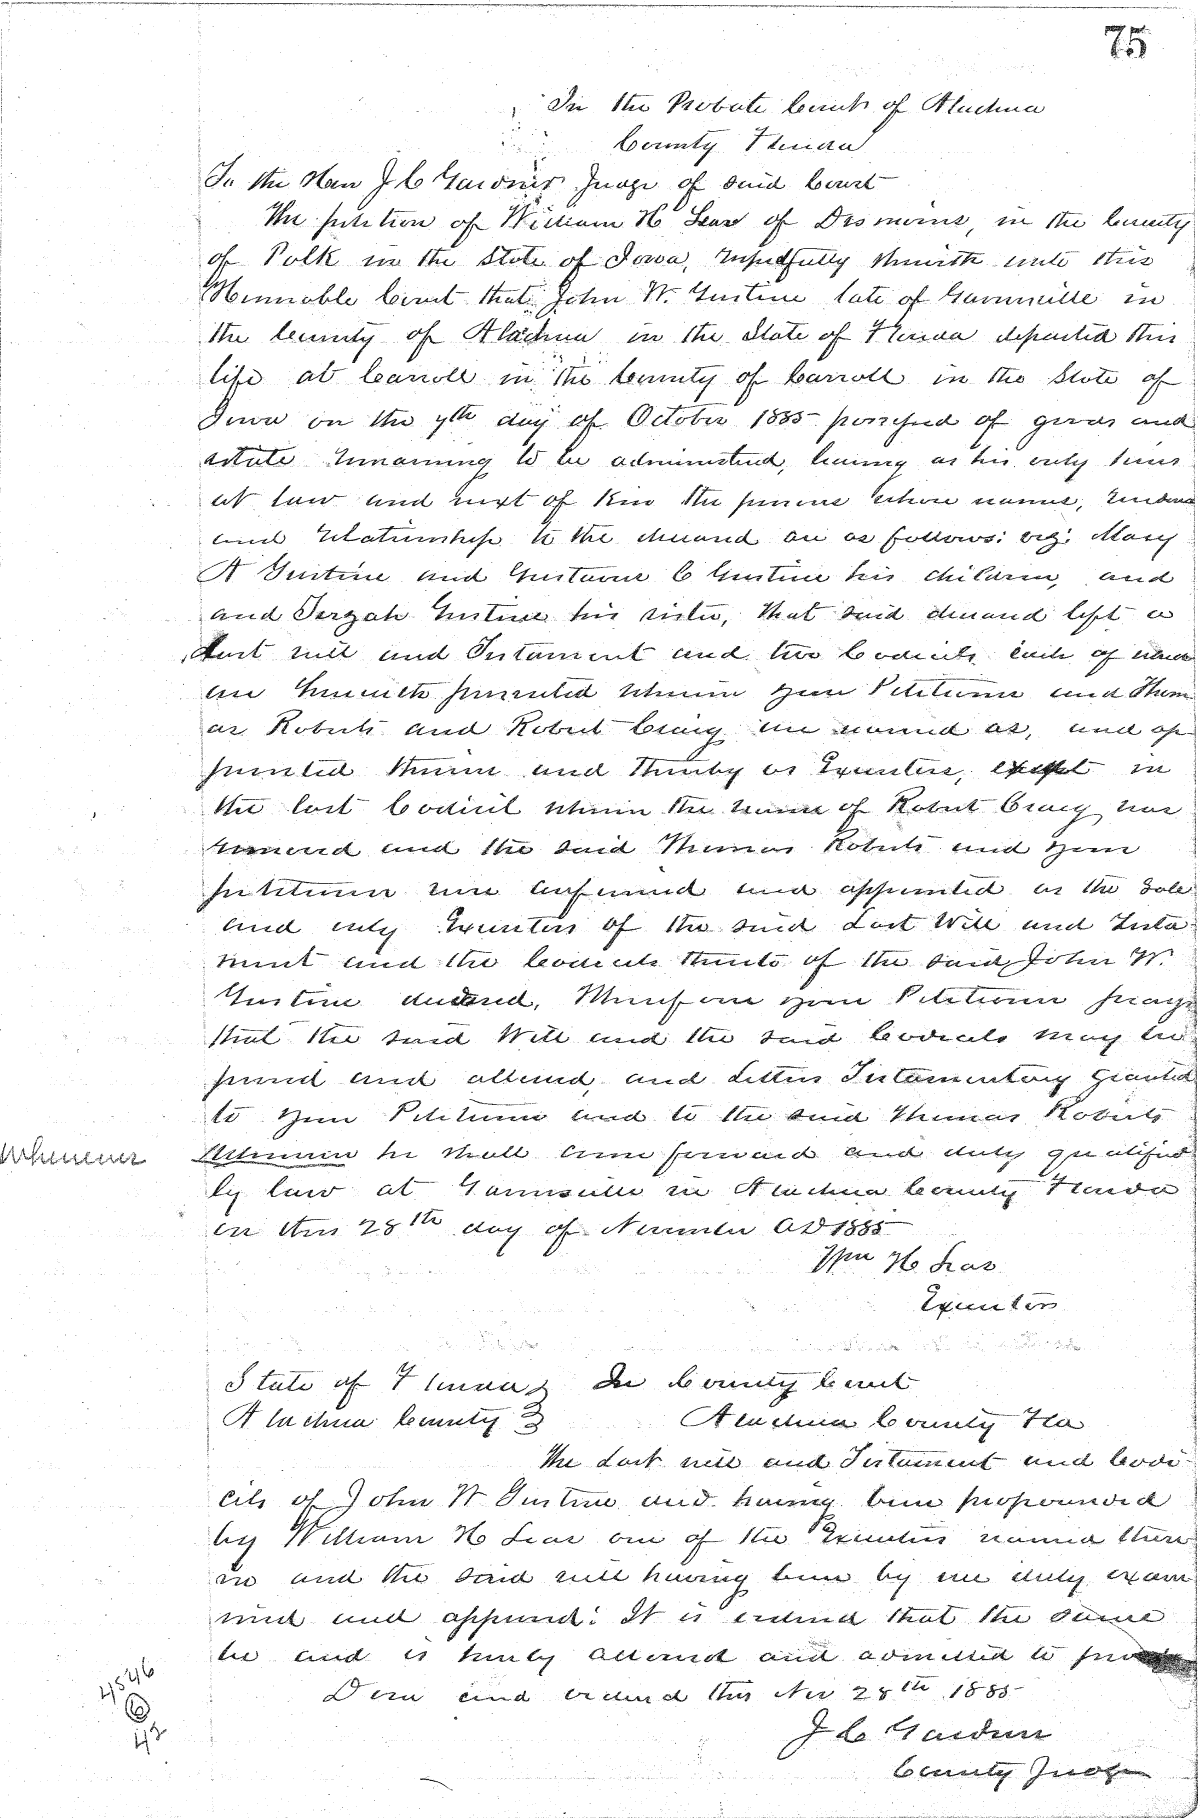 75
In the Probate Court of Alachua
County Florida
To the Hon J C Gardner Judge of said Court
The petition of William H Lear of Desmoins, in the County
of Polk in the State of Iowa, respectfully sheweth unto this
Honorable Court that John W. Gustine late of Gainesville in
the County of Alachua in the State of Florida departed this
life at Carroll in the County of Carroll in the State of
Iowa on the 7th day of October 1885 possessed of goods and
estate remaining to be administered, leaving as his only heirs
at law and next of Kin the persons whose names,
and relationship to the deceased are as follows: viz: Mary
A Gustine and Gustavus C Gustine his children, and
and Tirzah Gustine his sister, that said deceased left a
Last will and Testament and two Codicils each of which
are herewith presented wherein your Petitioner and Thom
as Roberts and Robert Craig are named as, and ap
pointed therein and thereby as Executors, except in
the last Codicil wherein the name of Robert Craig was
removed and the said Thomas Roberts and your
petitioner were confirmed and appointed as the sole
and only Executors of the said Last Will and Testa
ment and the Codicils thereto of the said John W.
Gustine deceased, Wherefore your Petitioner prays
that the said Will and the said Codicils may be
proved and allowed, and Letters Testamentary granted
to your Petitioner and to the said Thomas Roberts
whenever he shall come forward and duly qualified
whenever
by law at Gainesville in Alachua County Florida
on this 28th day of November AD 1885
Wm H Lear
Executor
State of Florida } In County Court
Alachua County } Alachua County Fla
The Last will and Testament and Codi
cils of John W Gustine and having been propounded
by William H Lear one of the Executors named there
in and the said will having been by me duly exam
ined and approved: It is ordered that the same
be and is hereby allowed and admitted to probate
Done and ordered this Nov 28th 1885
J C Gardner
County Judge
4546
@
42